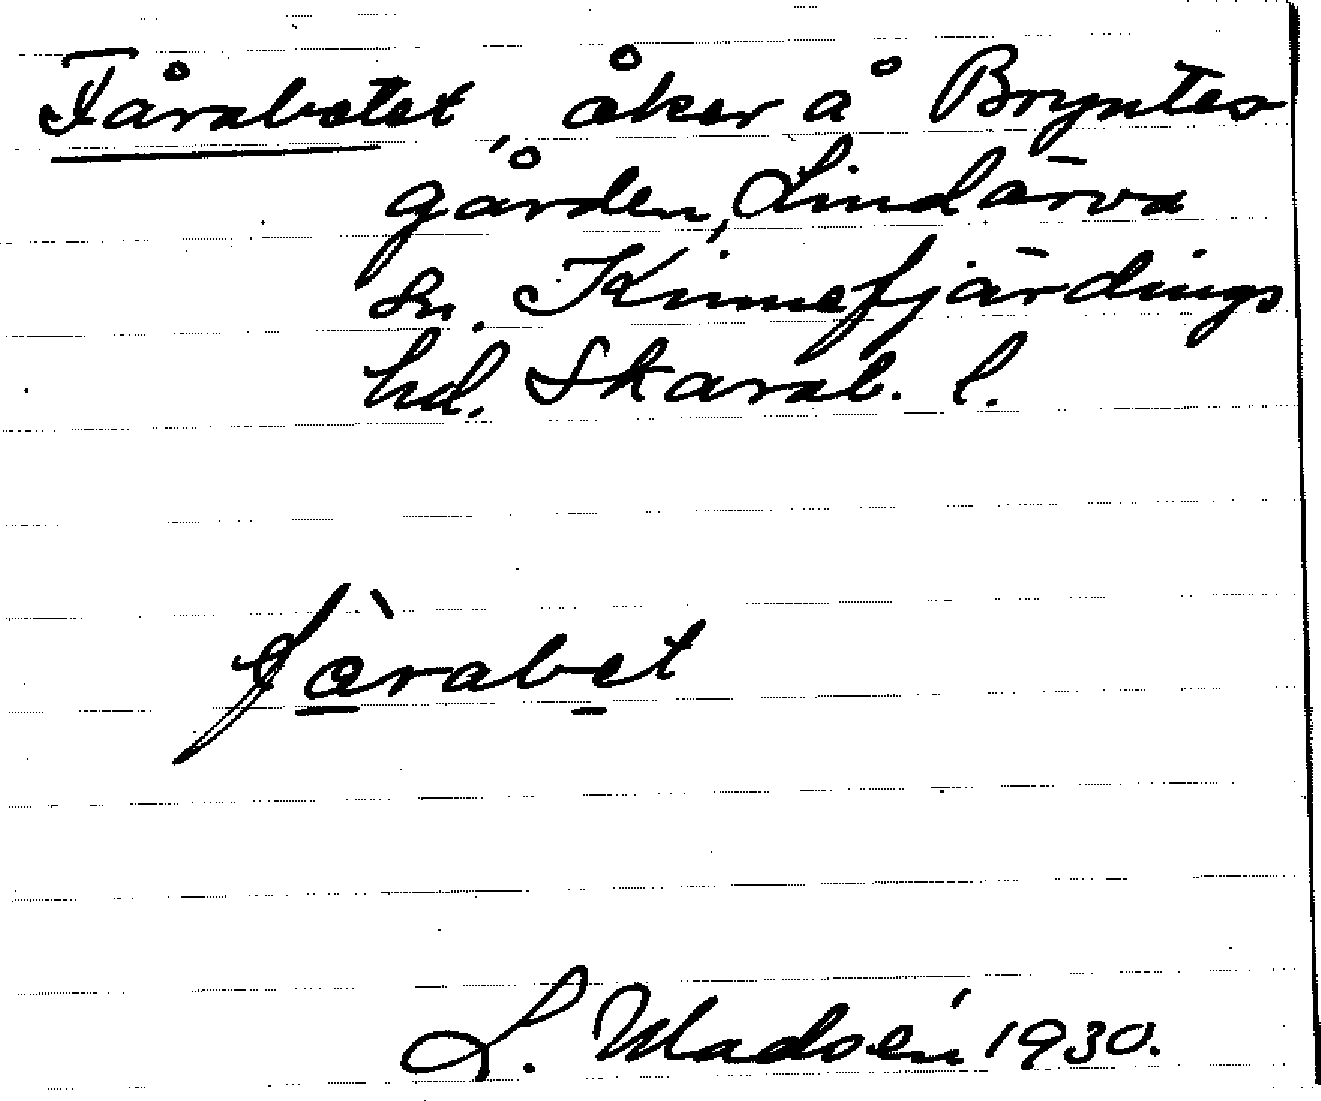 Fårabetet, åker å Bryntes
gården, Lindärva
sn. Kinnefjärdings
hd. Skarab. l.
fàrabet
L. Madsén 1930.